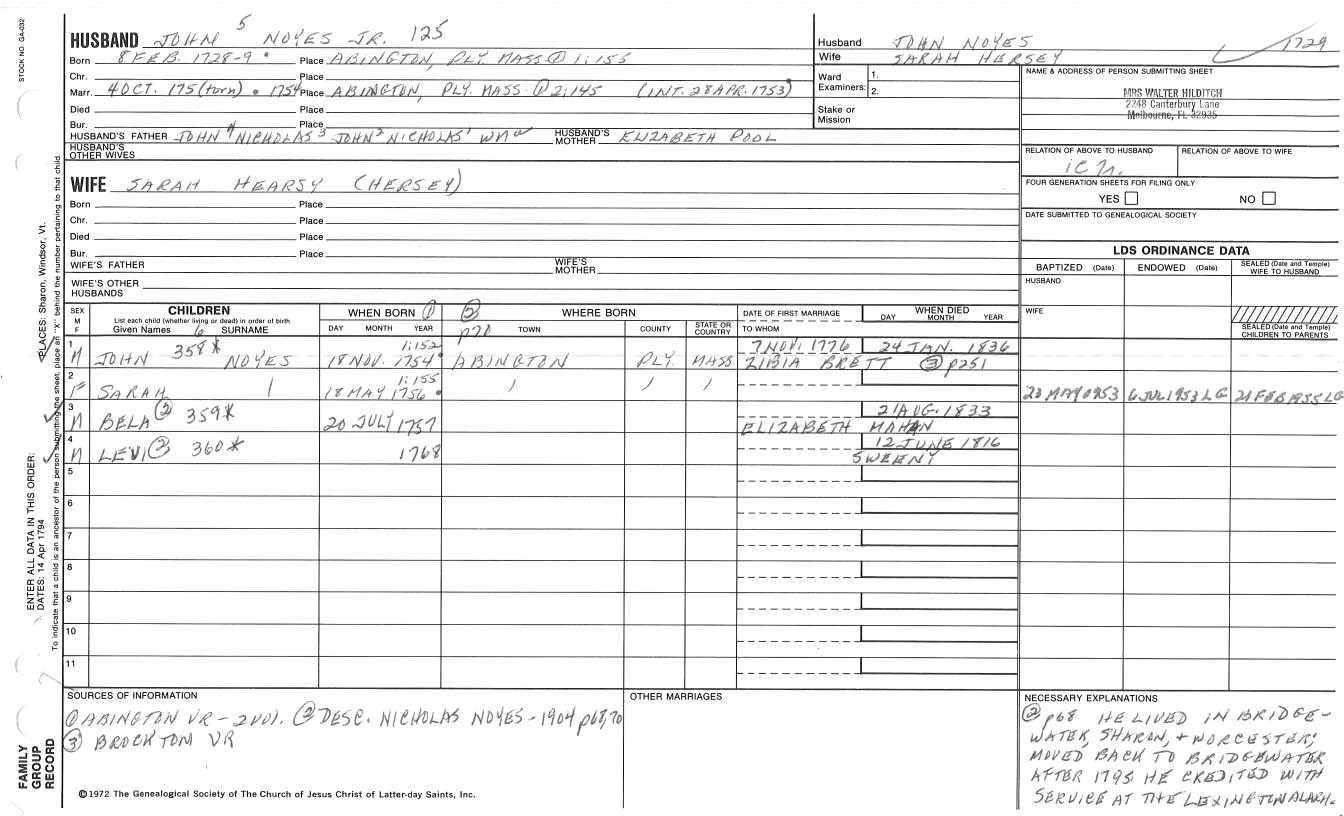 STOCK NO. GA-032
HUSBAND JOHN 5 NOYES JR. 125
Born 8 FEB. 1728-9 Place ABINGTON, PLY. MASS ① 1:155
Chr. Place
Marr. 4 OCT. 175(torn) 1754 Place ABINGTON, PLY. MASS. ① 2:145 (INT. 28 APR. 1753)
Died Place
Bur. Place
HUSBAND'S FATHER JOHN 4 NICHOLAS 3 JOHN 2 NICHOLAS 1 WM HUSBAND'S MOTHER ELIZABETH POOL
HUSBAND'S OTHER WIVES
WIFE SARAH HEARSY (HERSEY)
Born Place
Chr. Place
Died Place
Bur. Place
WIFE'S FATHER WIFE'S MOTHER
WIFE'S OTHER HUSBANDS
Husband JOHN NOYES 1729
Wife SARAH HERSEY
Ward Examiners: 1. 2.
Stake or Mission
NAME & ADDRESS OF PERSON SUBMITTING SHEET
MRS WALTER HILDITCH
2248 Canterbury Lane
Melbourne, FL 32935
RELATION OF ABOVE TO HUSBAND RELATION OF ABOVE TO WIFE
FOUR GENERATION SHEETS FOR FILING ONLY
YES NO
DATE SUBMITTED TO GENEALOGICAL SOCIETY
LDS ORDINANCE DATA
BAPTIZED (Date) ENDOWED (Date) SEALED (Date and Temple) WIFE TO HUSBAND
HUSBAND
WIFE
SEALED (Date and Temple) CHILDREN TO PARENTS
SEX M F CHILDREN WHEN BORN ① ② WHERE BORN DATE OF FIRST MARRIAGE WHEN DIED
List each child (whether living or dead) in order of birth
Given Names 6 SURNAME DAY MONTH YEAR p70 TOWN COUNTY STATE OR COUNTRY TO WHOM DAY MONTH YEAR
1 1:152 7 NOV. 1776 24 JAN. 1836
M JOHN 358* NOYES 18 NOV. 1754 ABINGTON PLY. MASS ZIBIA BRETT ③ p251
2 1:155
F SARAH 18 MAY 1756 6 JUL 1953 LG 21 FEB 1955 LG
3 21 AUG. 1833
M BELA ② 359* 20 JULY 1757 ELIZABETH MAHAN
4 12 JUNE 1816
M LEVI ② 360* 1768 SWEENY
5
6
7
8
9
10
11
SOURCES OF INFORMATION
① ABINGTON VR - 2 VOl. ② DESC. NICHOLAS NOYES - 1904 p68,70
③ BROCKTON VR
OTHER MARRIAGES
NECESSARY EXPLANATIONS
② p68 HE LIVED IN BRIDGE-
WATER, SHARON, + WORCESTER;
MOVED BACK TO BRIDGEWATER
AFTER 1795. HE CREDITED WITH
SERVICE AT THE LEXINGTON ALARM.
©1972 The Genealogical Society of The Church of Jesus Christ of Latter-day Saints, Inc.
FAMILY
GROUP
RECORD
ENTER ALL DATA IN THIS ORDER:
DATES: 14 Apr 1794 PLACES: Sharon, Windsor, Vt.
To indicate that a child is an ancestor of the person submitting the sheet, place an "X" behind the number pertaining to that child.